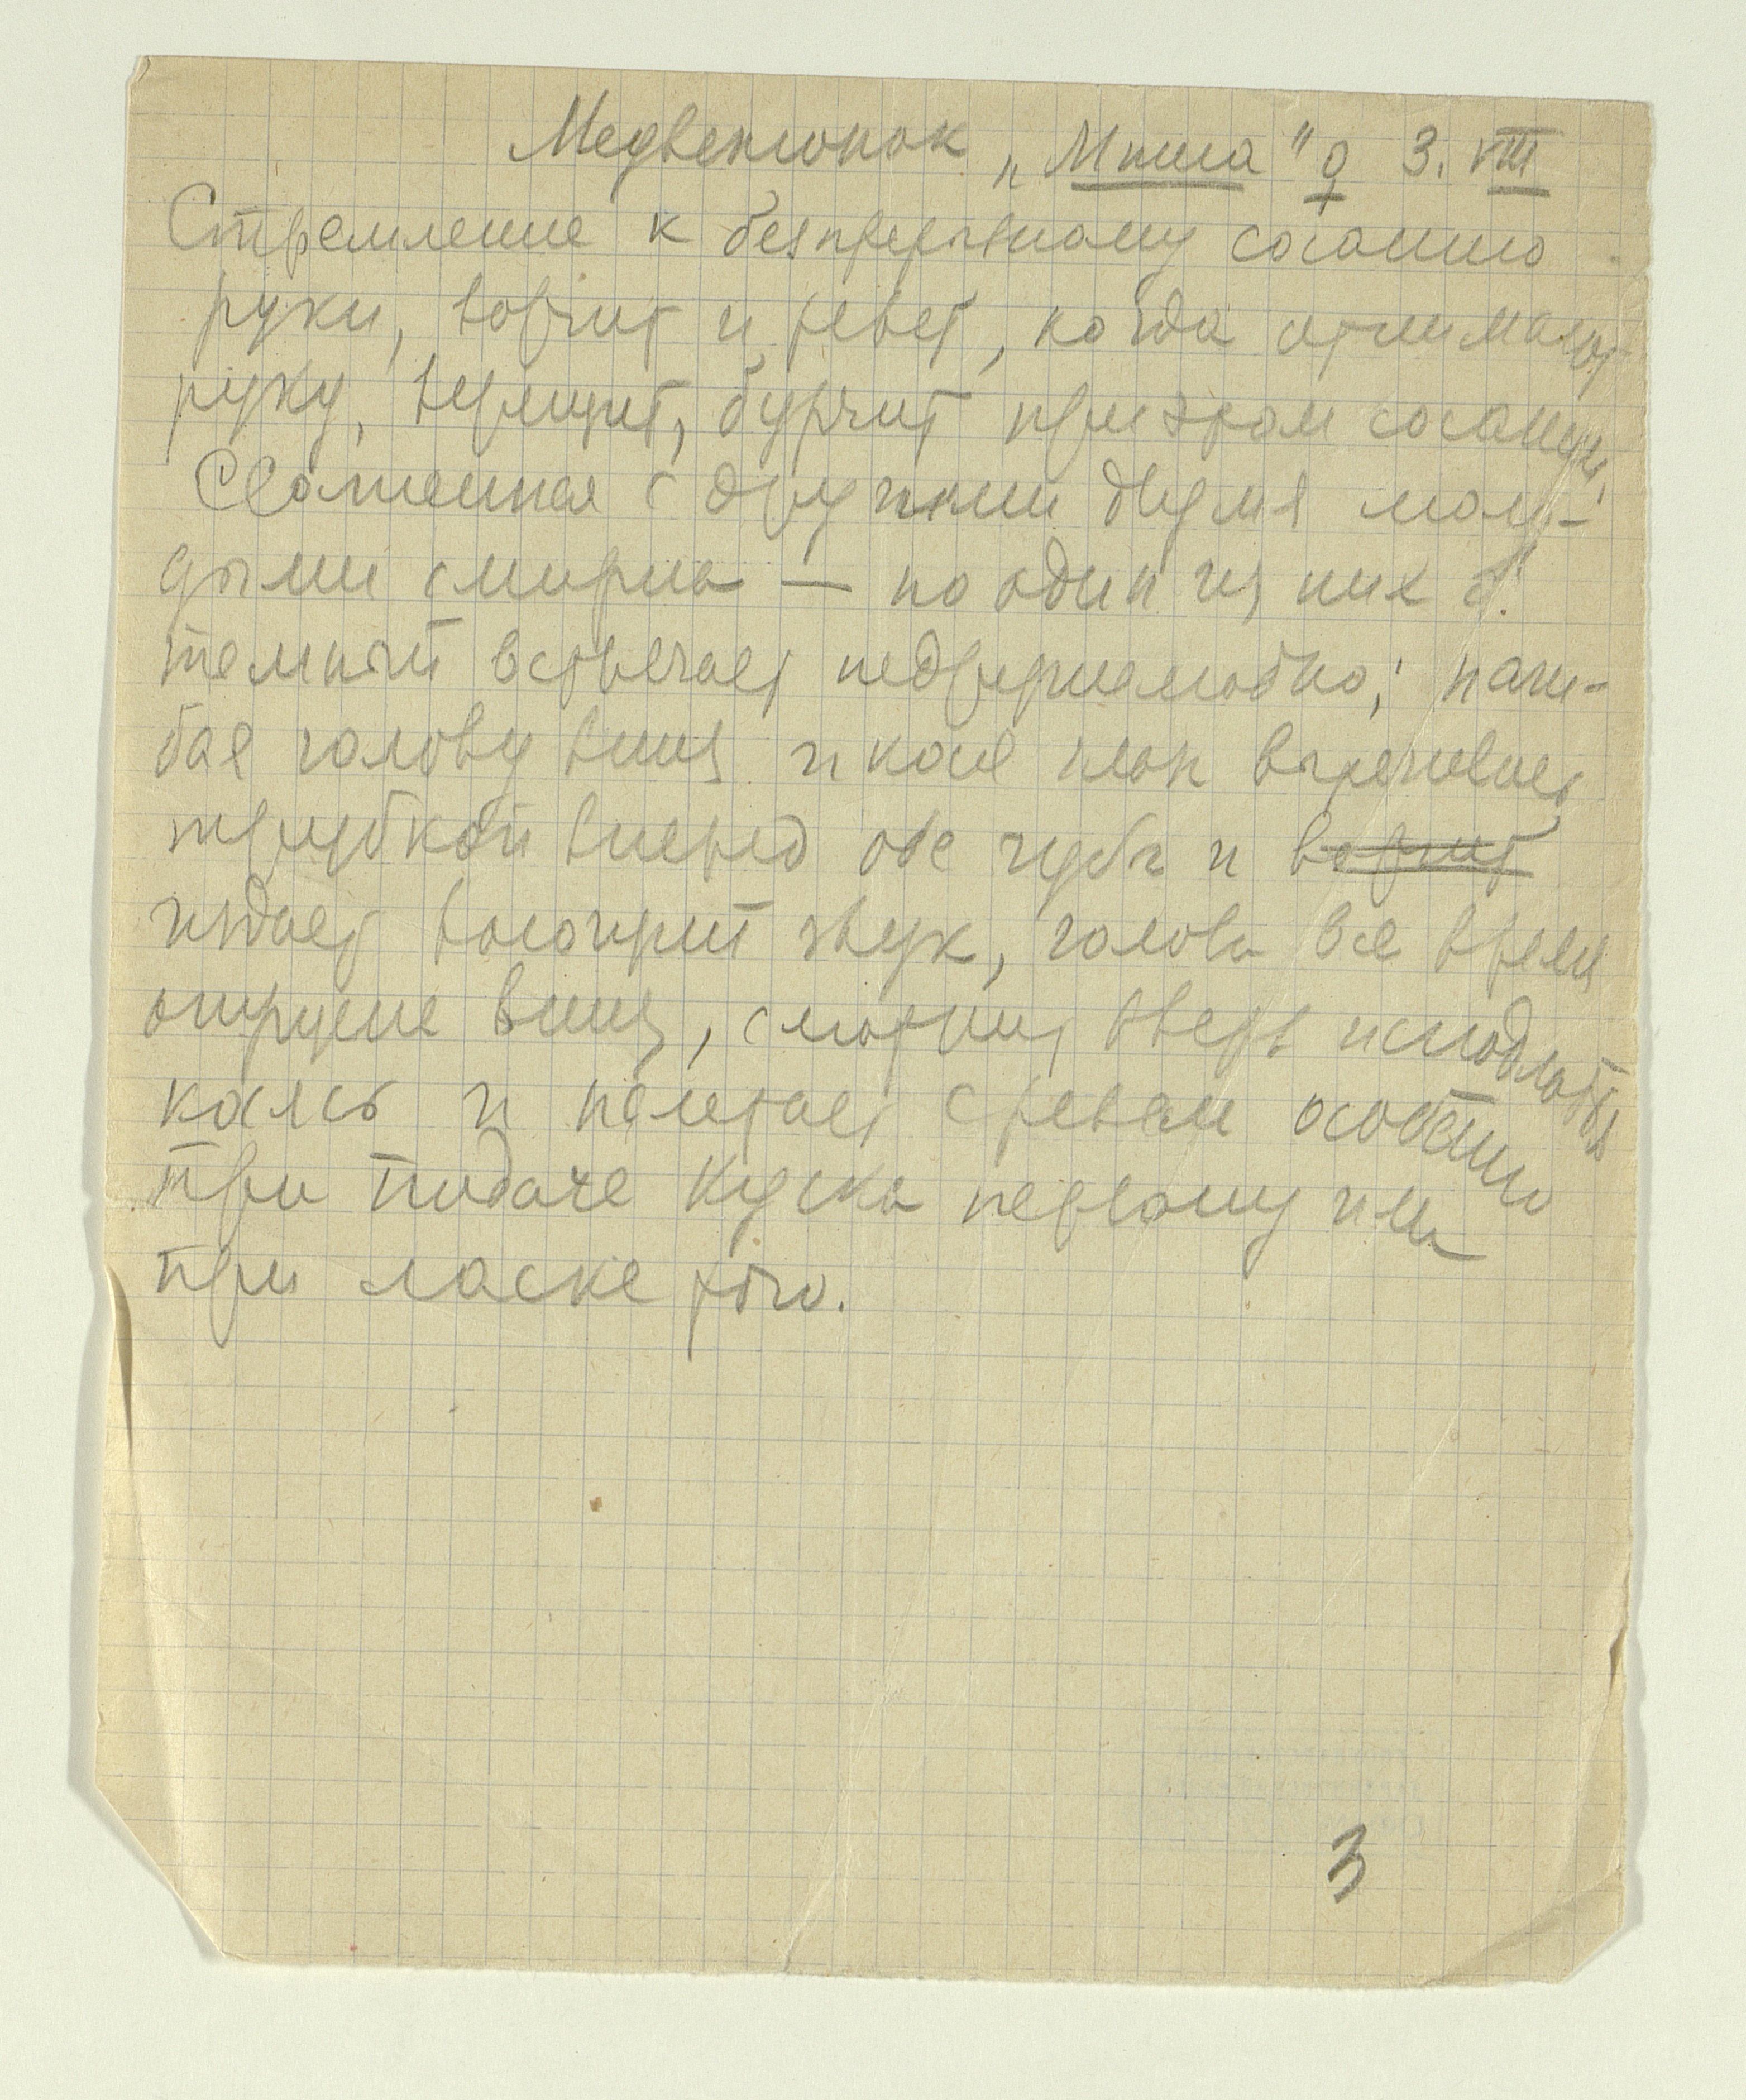 Медвежонок „Миша" ♀ 3. VIII
Стремление к безпрерывному сосанию
руки, ворчит и ревет, когда отнимают
руку, верещит, бурчит при этом сосании,
с другими двумя моло-
дыми смирна — но один из них
темный встречает недружелюбно; наги-
бая голову вниз и кося нею вытягивает
трубкой вперед обе губы и ворчит
издает высокий звук, голова все время
опущена вниз, смотрит вверх исподлобья
косясь и налетает с ревом особенно
при подаче куска первому или
при ласке его.
3